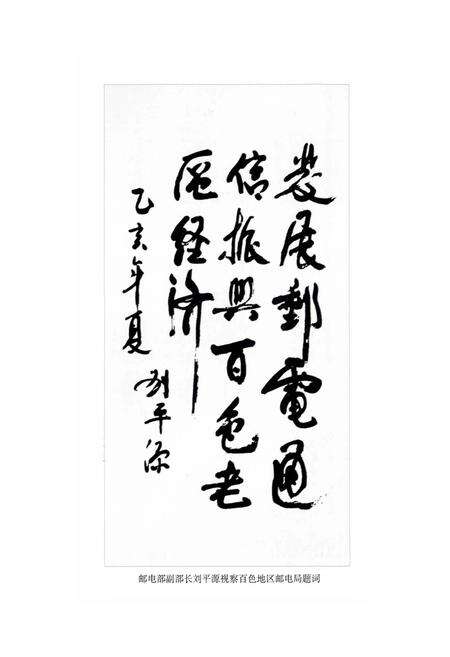 发展郵電通
信振興百色老
區经济
乙亥年夏
刘平源
邮电部副部长刘平源视察百色地区邮电局题词